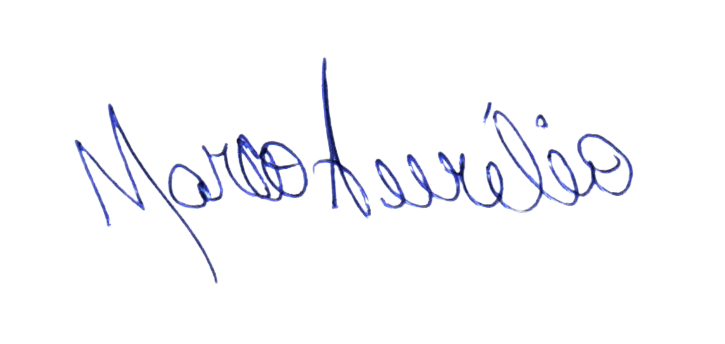 Marco Aurélio